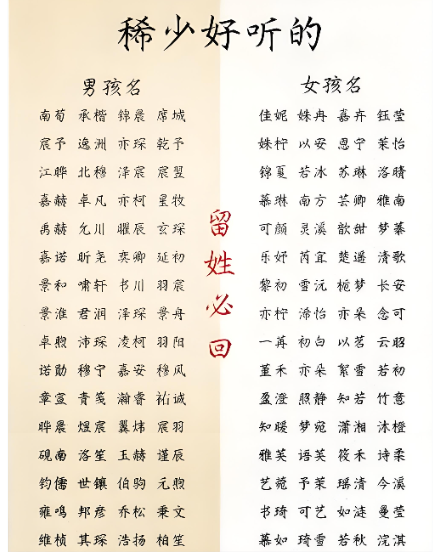 稀少好听的
男孩名
南荀 承楷 锦晨 席城
宸予 逸洲 亦琛 乾予
江晔 北穆 泽宸 宸翌
嘉赫 卓凡 亦柯 星牧
禹赫 允川 曜辰 玄琛
嘉诺 昕尧 奕卿 延初
景和 啸轩 书川 羽宸
景淮 君润 泽琛 景舟
卓煦 沛琛 凌柯 羽阳
诺勋 穆宁 嘉安 穆风
章萱 青笺 瀚睿 祐诚
晔晨 煜宸 翼炜 宸羽
砚南 洛笙 玉赫 谨辰
钧儒 世镶 伯驹 元煦
雍鸣 邦彦 乔松 秉文
维桢 其琛 浩扬 柏笙
留姓必回
女孩名
佳妮 姝冉 嘉卉 钰莹
姝柠 以安 恩宁 茉怡
锦夏 若冰 苏琳 洛晴
慕琳 南方 芸卿 雅南
可颜 灵溪 歆甜 梦蓁
乐妤 芮宜 楚遥 清歌
黎初 雪沅 栀梦 长安
亦柠 渧怡 亦朵 念可
一苒 初白 以茗 云昭
堇禾 亦朵 絮雪 若初
盈澄 照静 知若 竹意
知暖 梦宛 潇湘 沐橙
雅芙 语芙 筱禾 诗柔
艺菀 予茉 瑶清 今溪
书琦 可艺 如涟 曼莹
慕如 琦雯 若秋 浣淇